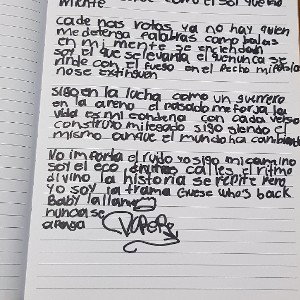 mente
como el sol que no
cadenas rotas, ya no hay quien
me detenga palabras como balas
en mi mente se enciendan
soy el que se levanta, el que nunca se
rinde con el fuego en el pecho mi
no se extinguen
sigo en la lucha como un guerrero
en la arena el pasado me forja la
vida es mi condena con cada verso
construyo mi legado sigo siendo el
mismo aunque el mundo ha cambiado
No importa el ruido yo sigo mi camino
soy el eco calles, el ritmo
divino la historia se repite pero
yo soy la trama Guese whos back
Baby la llama
nunca se
apaga